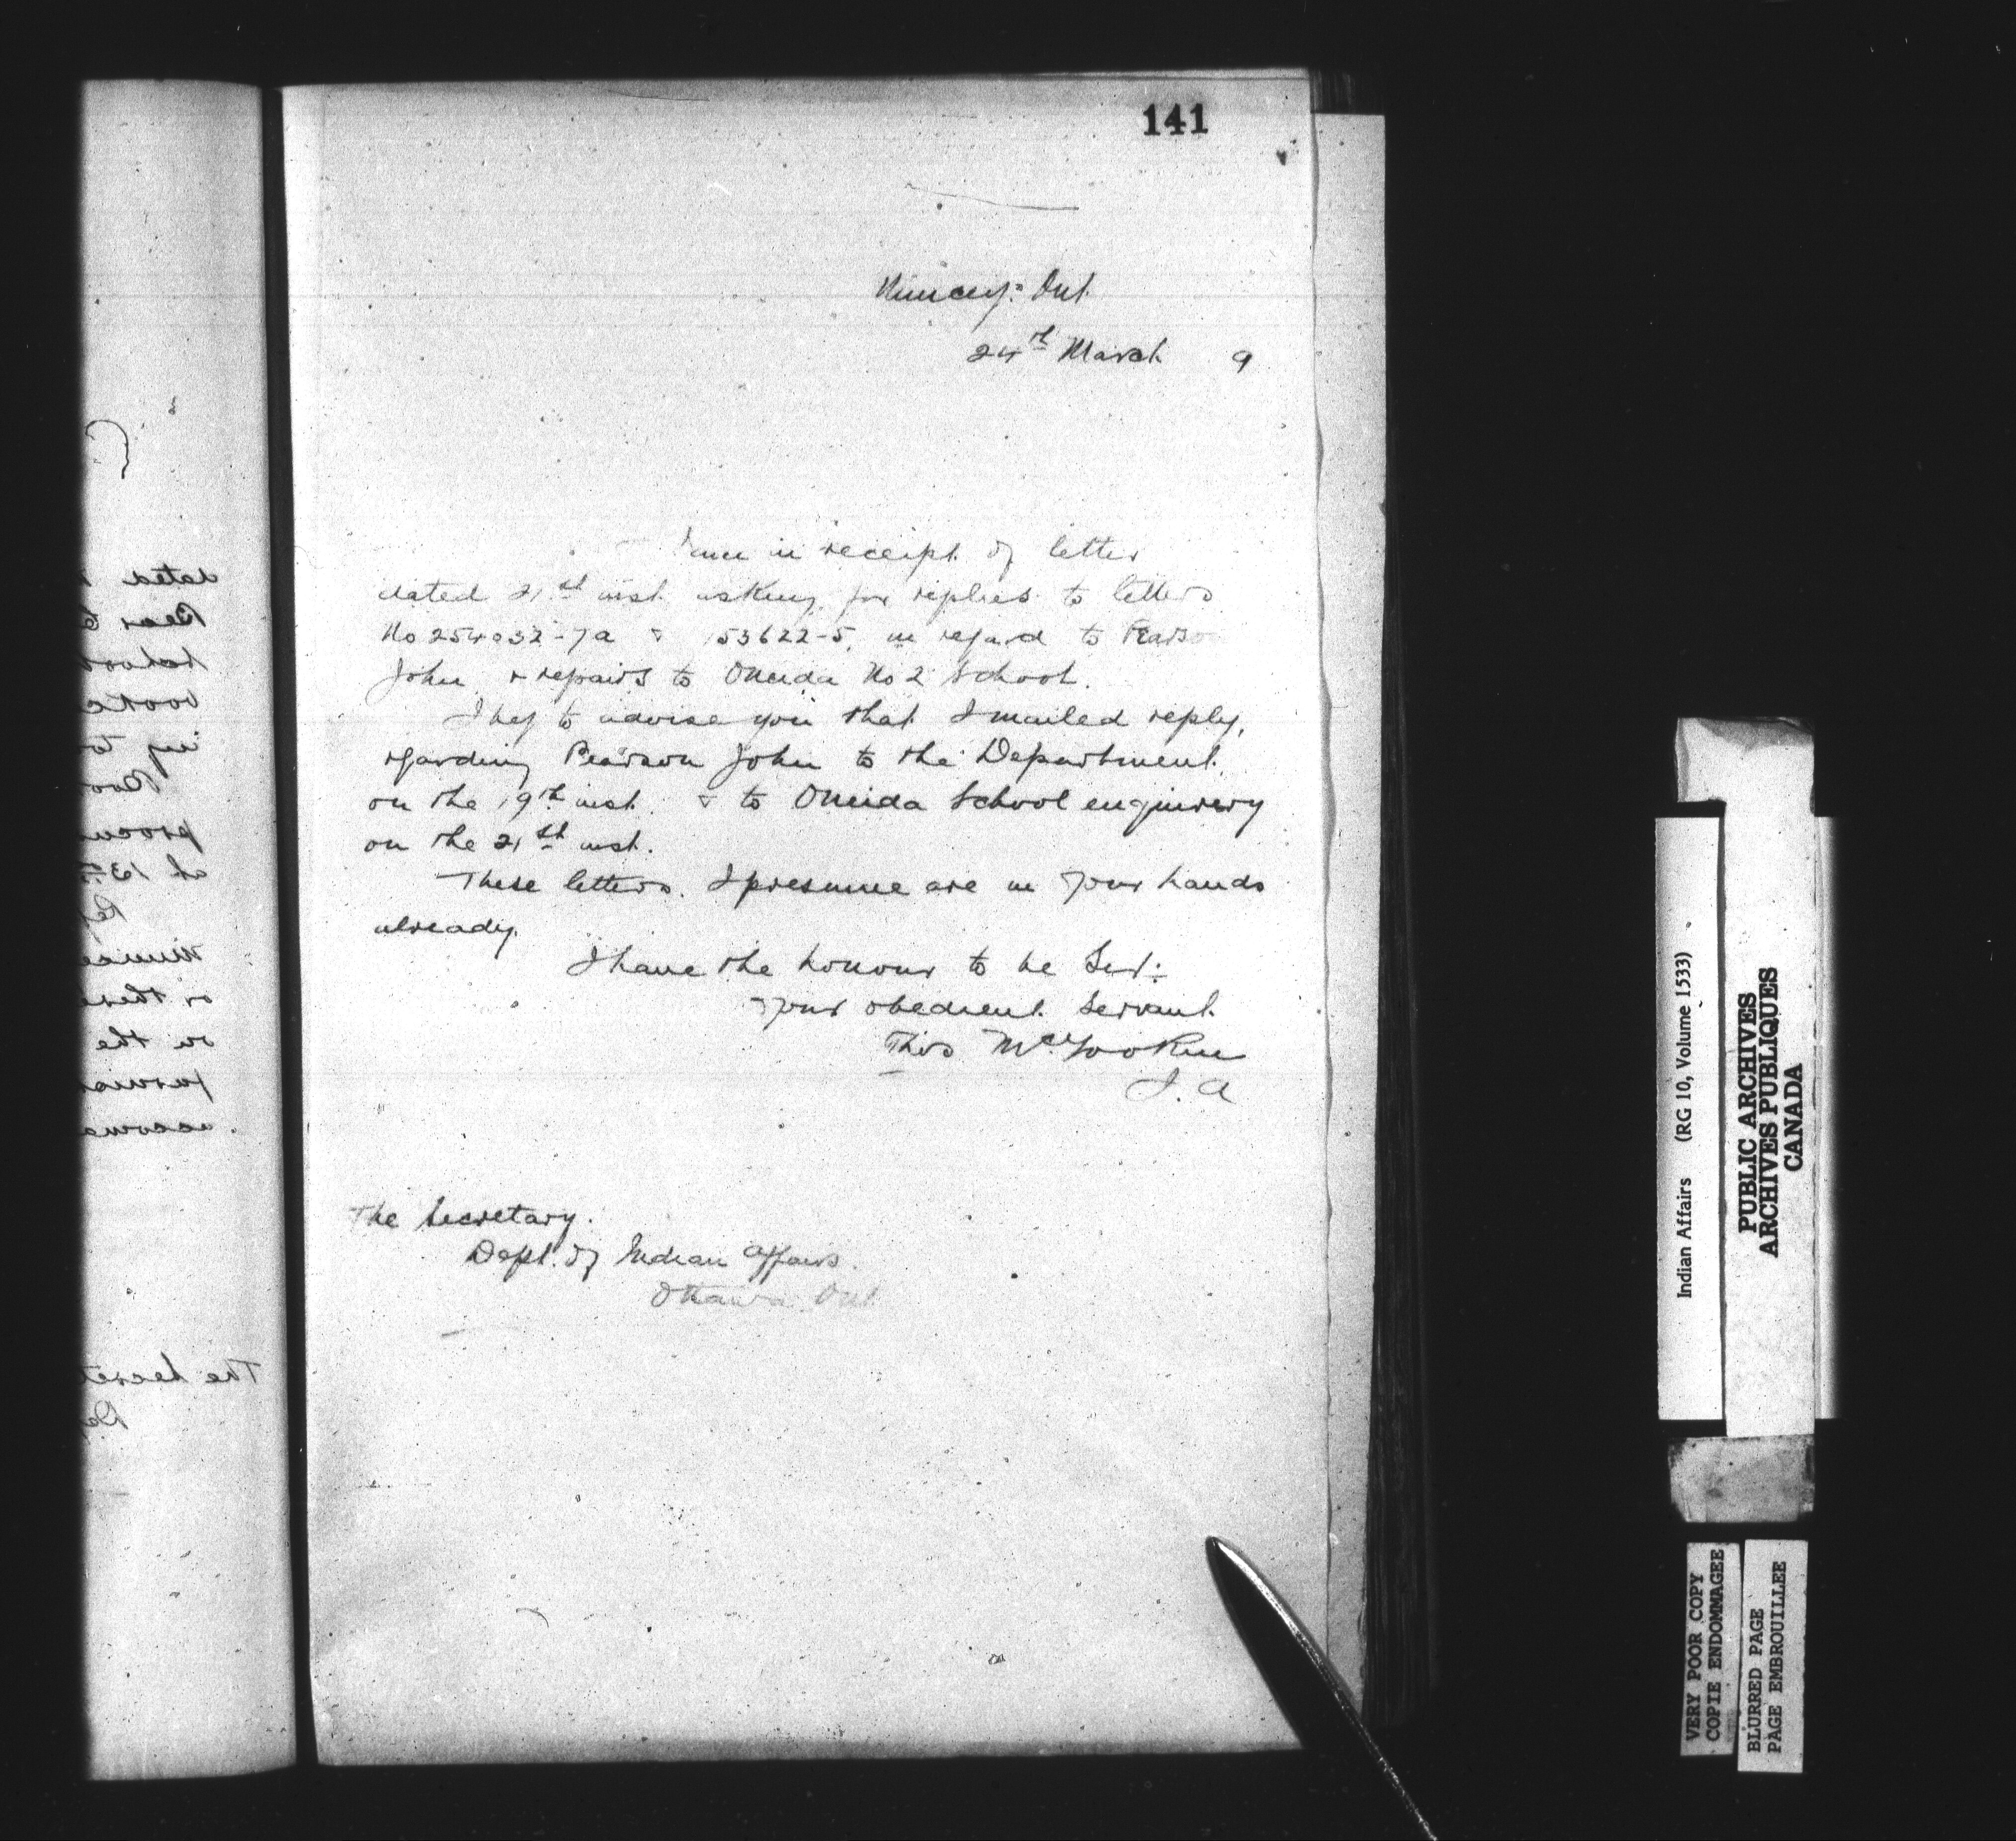 141
Muncey: Ont.
24th March 9
I am in receipt of letter
dated 21st inst. asking for replies to letters
No 254032-7a & 153622-5, in regard to Pearson
John & repairs to Oneida No 2 School.
I beg to advise you that I mailed reply,
regarding Pearson John to the Department
on the 19th inst. & to Oneida School enquirery
on the 21st inst.
These letters. I presume are in your hands
already.
I have the honour to be Sir:
Your obedient Servant.
Thos McGookin
I. A
The Secretary.
Dept. of Indian Affairs.
Ottawa Ont.
Indian Affairs (RG 10, Volume 1533)
PUBLIC ARCHIVES
ARCHIVES PUBLIQUES
CANADA
VERY POOR COPY
COPIE ENDOMMAGEE
BLURRED PAGE
PAGE EMBROUILLEE